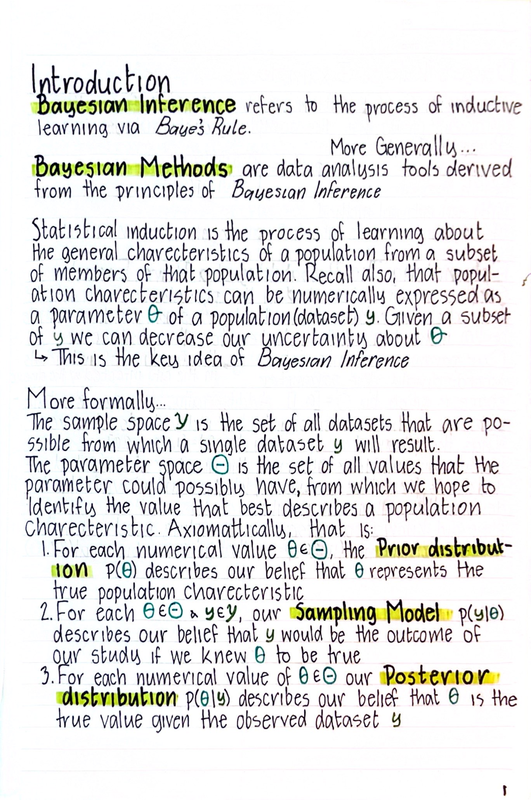 Introduction
Bayesian Inference refers to the process of inductive
learning via Baye's Rule.
More Generally...
Bayesian Methods are data analysis tools derived
from the principles of Bayesian Inference
Statistical induction is the process of learning about
the general charecteristics of a population from a subset
of members of that population. Recall also, that popul-
ation charecteristics can be numerically expressed as
a parameter θ of a population (dataset) y. Given a subset
of y we can decrease our uncertainty about θ
↳ This is the key idea of Bayesian Inference
More formally...
The sample space Y is the set of all datasets that are po-
ssible from which a single dataset y will result.
The parameter space Θ is the set of all values that the
parameter could possibly have, from which we hope to
identify the value that best describes a population
charecteristic. Axiomattically, that is:
1. For each numerical value θ∈Θ, the Prior distribut-
ion p(θ) describes our belief that θ represents the
true population charecteristic
2. For each θ∈Θ & y∈Y, our Sampling Model p(y|θ)
describes our belief that y would be the outcome of
our study if we knew θ to be true
3. For each numerical value of θ∈Θ our Posterior
distribution p(θ|y) describes our belief that θ is the
true value given the observed dataset y
1